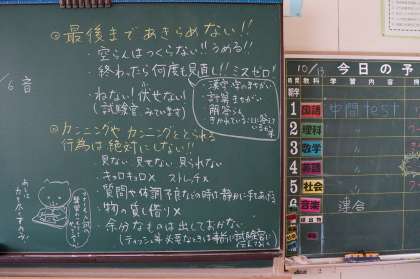 ◎最後まであきらめない!!
・空らんはつくらない!! うめる!!
・終わったら何度も見直し!! ミスゼロ
・漢字
・計算まちがい
・解答らん
・きかれていることに答えて
いるか
・ねない! 伏せない!
(試験官、みています)
◎カンニングや カンニングをとられる
行為は絶対にしない!!
・見ない、見せない、見られない
・キョロキョロ× ストレッチ×
・質問や体調不良などの時は静かに手をあげる
・物の貸し借り×
・余分なものは出しておかない
6 音
10/13 今日の予
教科 学習内容
朝学
1 国語 中間test
2 理科 〃
3 数学 〃
4 英語 〃
5 社会 〃
6 音楽 連合